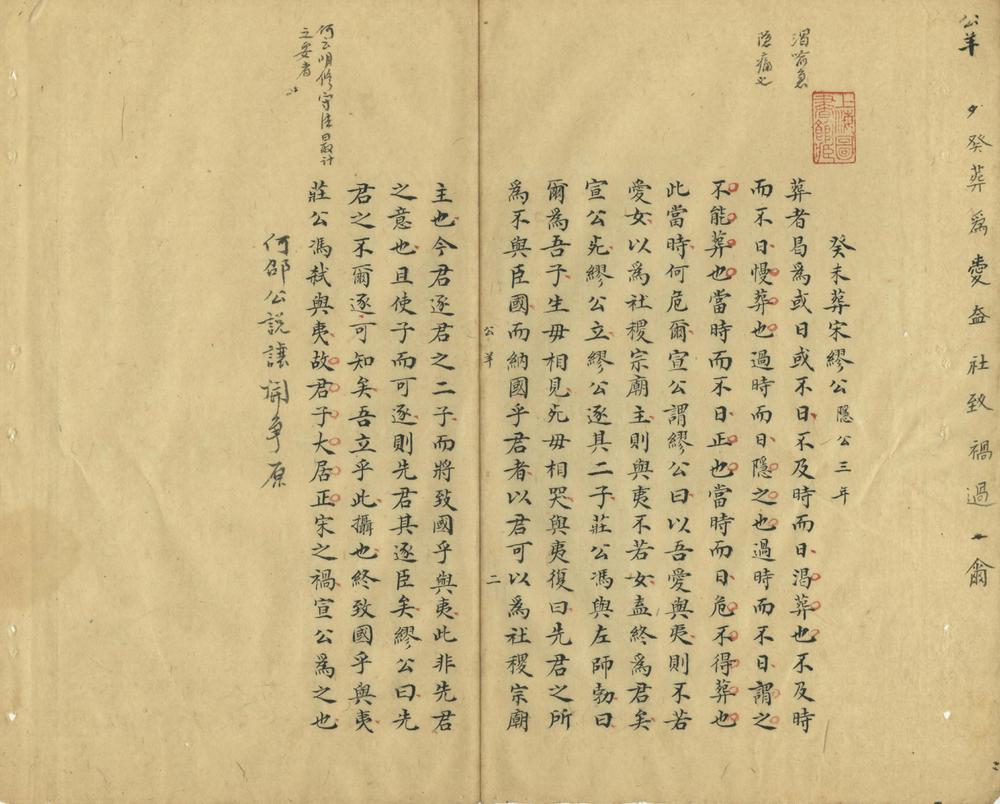 公羊
癸葬為愛益社致禍過翕
渴喻急
隱痛也
上海圖
書館藏
癸未葬宋繆公隱公三年
葬者曷為或日或不日不及時而日渴葬也不及時
而不日慢葬也過時而日隱之也過時而不日謂之
不能葬也當時而不日正也當時而日危不得葬也
此當時何危爾宣公謂繆公曰以吾愛與夷則不若
愛女以為社稷宗廟主則與夷不若女盍終為君矣
宣公死繆公立繆公逐其二子莊公馮與左師勃曰
爾為吾子生毋相見死毋相哭與夷復曰先君之所
為不與臣國而納國乎君者以君可以為社稷宗廟
公羊
二
主也今君逐君之二子而將致國乎與夷此非先君
之意也且使子而可逐則先君其逐臣矣繆公曰先
君之不爾逐可知矣吾立乎此攝也終致國乎與夷
莊公馮弒與夷故君子大居正宋之禍宣公為之也
何云明修守法最计
之要者
何邵公說讓開爭原